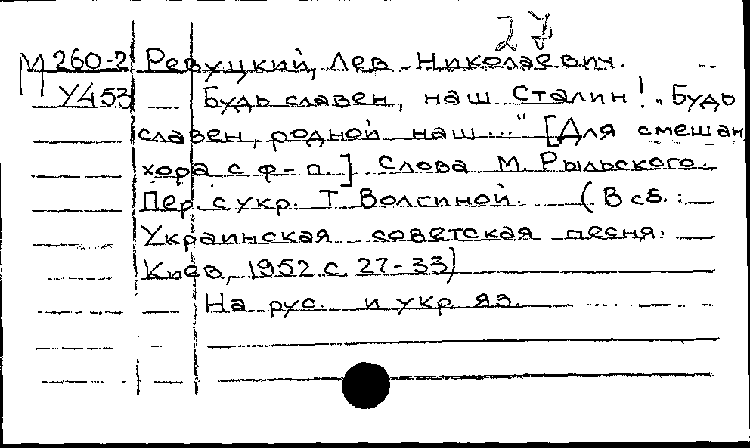 27
М 260-2 Ревуцкий, Лев Николаевич.
У453 Будь славен, наш Сталин! „Будь
славен, родной наш..." [Для смешан
хора с ф-п.] Слова М. Рыльского.
Пер. с укр. Т. Волгиной. (В сб.:
Украинская советская песня.
Киев, 1952 с. 27-33)
На рус. и укр яз.